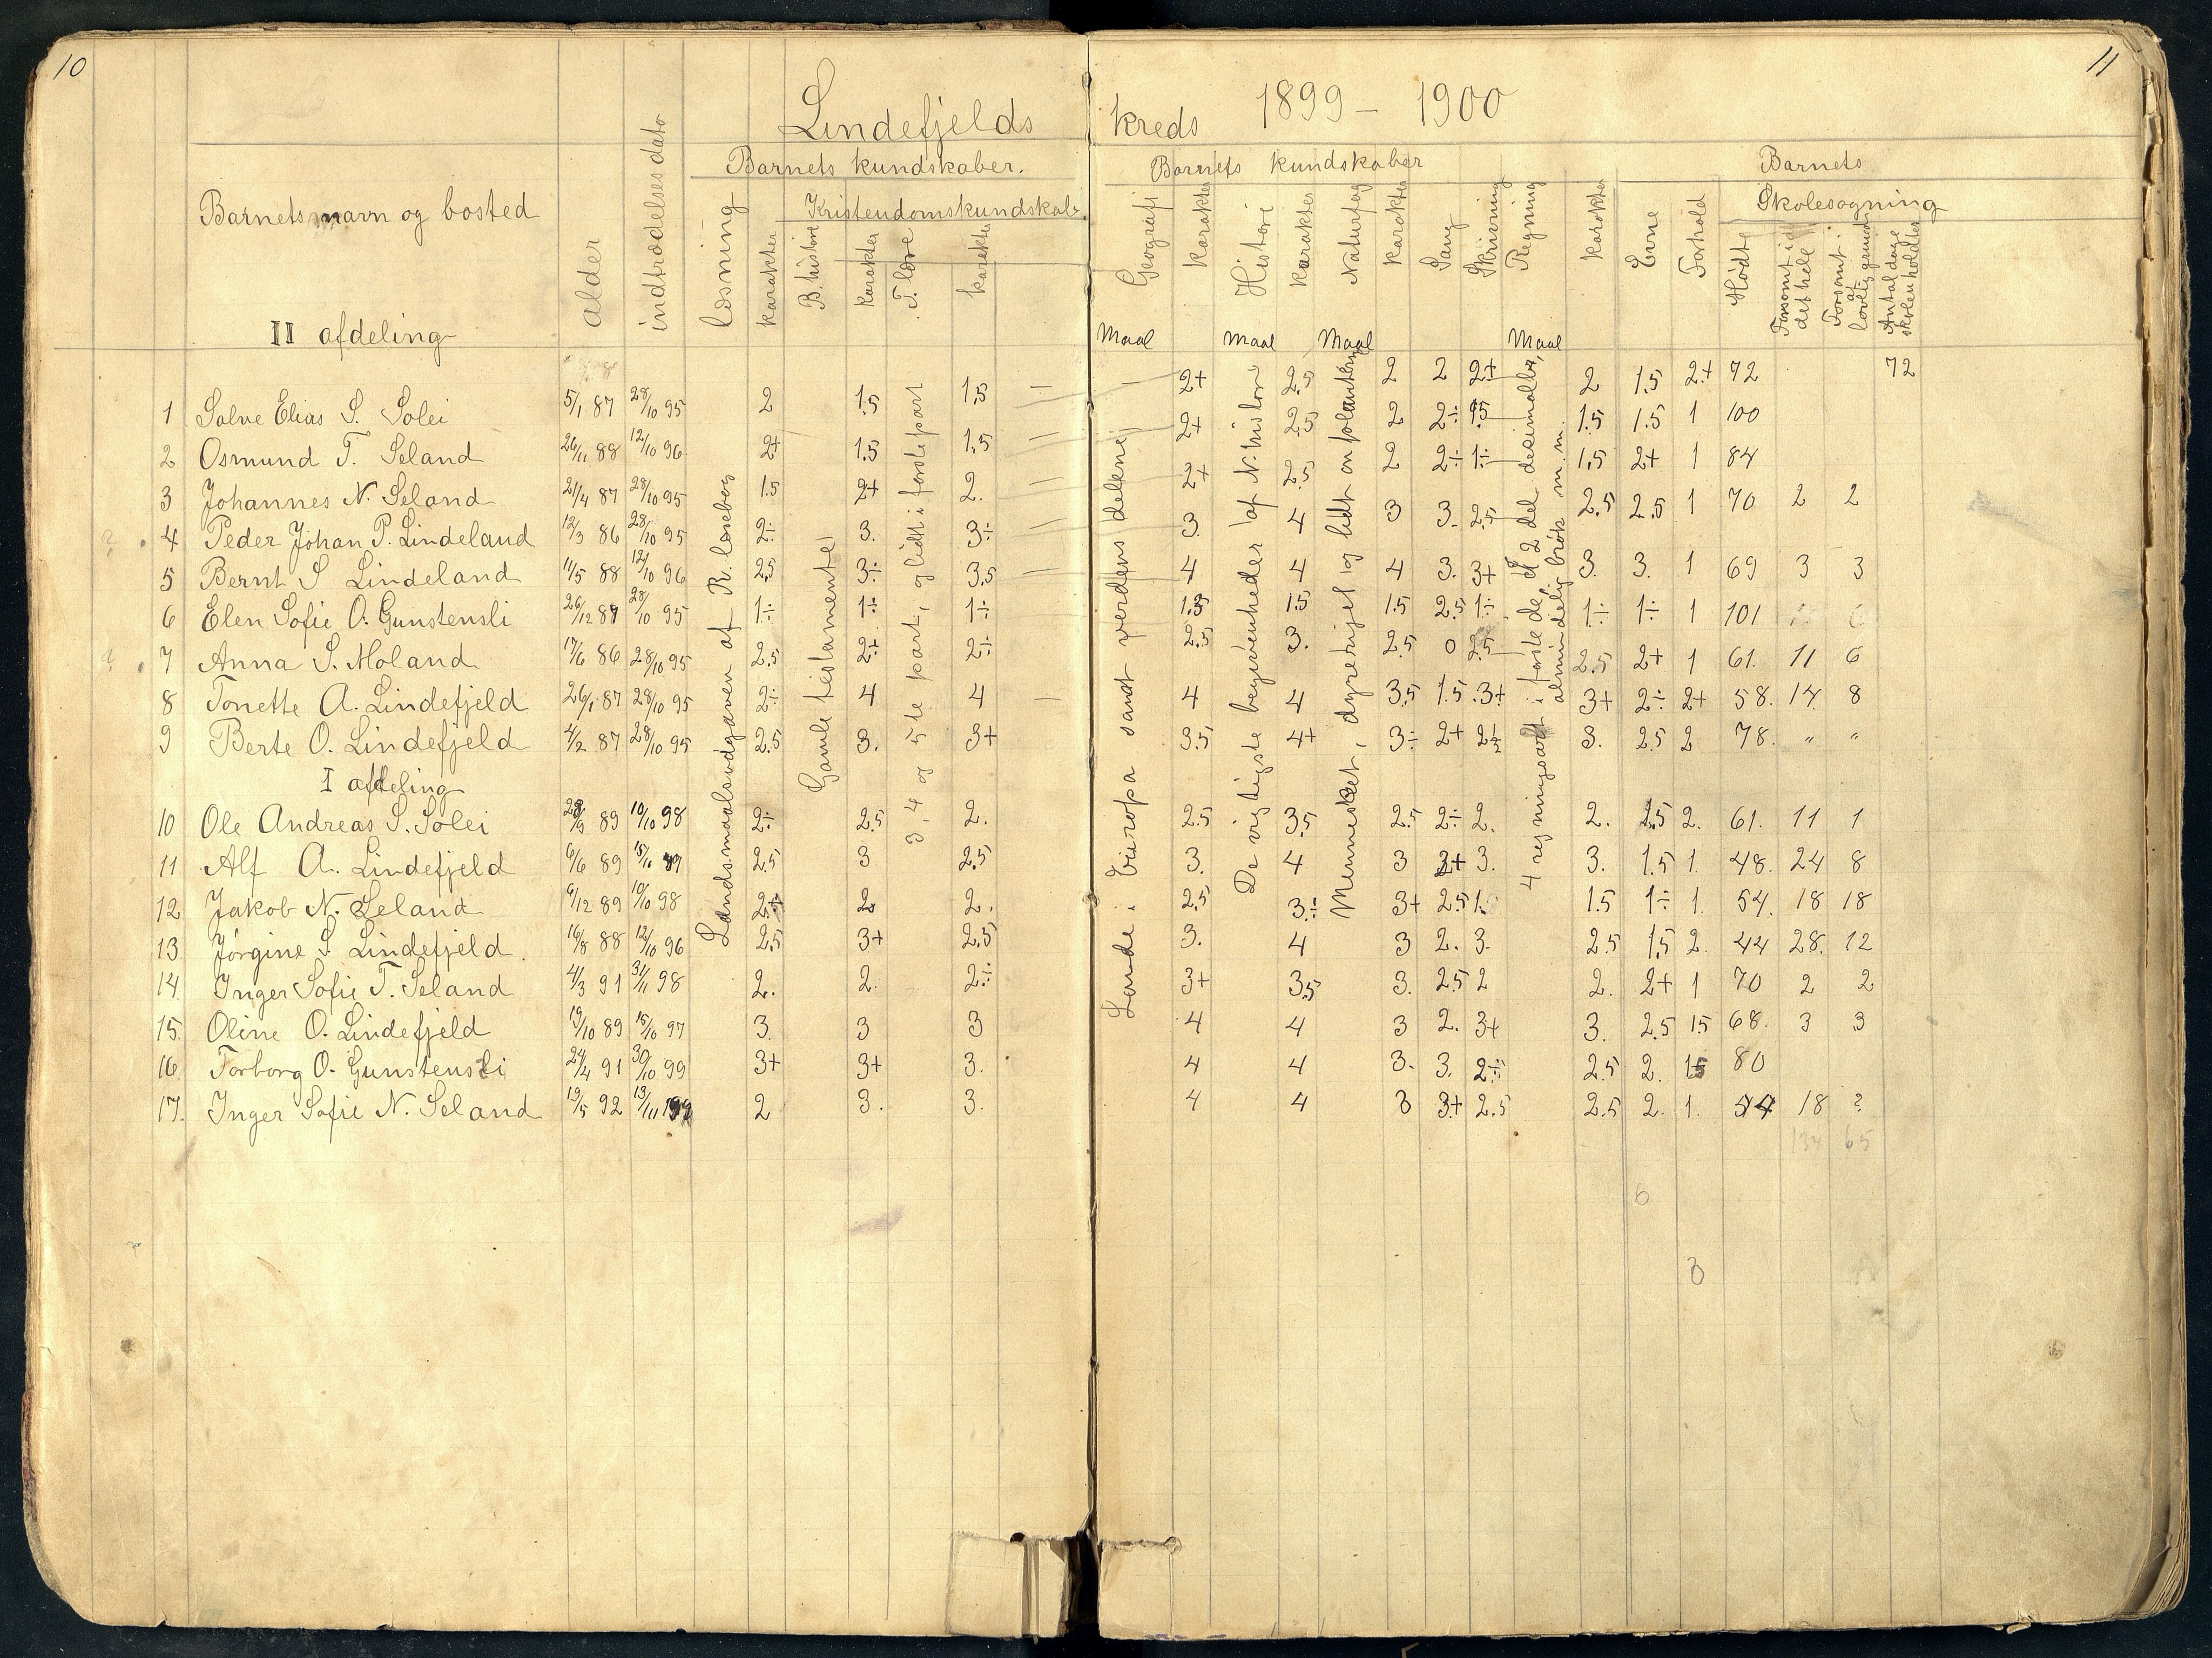 10
11
Lindefjelds kreds 1899 – 1900
Barnets navn og bosted
II afdeling
Alder
indtrædelsesdato
Barnets kundskaber.
læsning
karakter
Kristendomskundskab.
B. historie
karakter
T. lære
karakter
Barnets kundskaber
Geografi
karakter
Historie
karakter
Naturfag
karakter
Sang
Skrivning
Regning
karakter
Evne
Forhold
Barnets
Skolesøgning
Mødte
Forsømt i det hele
Forsømt af lovlig grund
Antal dage skolen holdtes
Maal Maal Maal Maal
Landsmaalsudgaven af R. læsebog
Gamle testamente
3, 4 og 5te part, og lidt i første part
Lande i Europa samt verdens delene
De vigtigste begivenheder af N. historie
Mennesket, dyreriget og lidt om planterne
4 regningsart i første del, 2 del desimalbr, almindelig brøk m. m.
1 Salve Elias S. Solei 5/1 87 28/10 95 2 1.5 1.5 – 2+ 2.5 2 2 2+ 2 1.5 2+ 72 72
2 Osmund T. Seland 26/11 88 12/10 96 2+ 1.5 1.5 2+ 2.5 2 2÷ 1.5 1.5 1.5 1 100
3 Johannes N. Seland 21/4 87 28/10 95 1.5 2+ 2. 2+ 2.5 2 2÷ 1÷ 1.5 2+ 1 84
4 Peder Johan P. Lindeland 12/3 86 28/10 95 2÷ 3. 3÷ 3. 4 3 3. 2.5 2.5 2.5 1 70 2 2
5 Bernt S Lindeland 11/5 88 12/10 96 2.5 3÷ 3.5 4 4 4 3. 3+ 3. 3. 1 69 3 3
6 Elen Sofie O. Gunstensli 26/12 87 28/10 95 1÷ 1÷ 1÷ 1.5 1.5 1.5 2.5 1÷ 1÷ 1÷ 1 101
7 Anna S. Moland 17/6 86 28/10 95 2.5 2÷ 2÷ 2.5 3. 2.5 0 2.5 2.5 2+ 1 61. 11 6
8 Tonette A. Lindefjeld 26/1 87 28/10 95 2÷ 4 4 – 4 4 3.5 1.5 3+ 3+ 2÷ 2+ 58. 14 8
9 Berte O. Lindefjeld 4/2 87 28/10 95 2.5 3. 3+ 3.5 4+ 3÷ 2+ 2÷ 3. 2.5 2 78. " "
I afdeling
10 Ole Andreas S. Solei 28/3 89 10/10 98 2÷ 2.5 2. 2.5 3.5 2.5 2÷ 2. 2. 1.5 2. 61. 11 1
11 Alf A. Lindefjeld 6/6 89 15/10 97 2.5 3 2.5 3. 4 3 2+ 3. 3. 1.5 1. 48. 24 8
12 Jakob N. Seland 9/12 89 10/10 98 2+ 2. 2. 2.5 3÷ 3+ 2.5 1.5 1.5 1÷ 1. 54. 18 18
13 Jørgine S. Lindefjeld. 16/8 88 12/10 96 2.5 3+ 2.5 3. 4 3 2. 3. 2.5 1.5 2. 44 28. 12
14 Inger Sofie T. Seland 4/3 91 31/11 98 2. 2. 2÷ 3+ 3.5 3. 2.5 2 2. 2+ 1 70 2 2
15 Oline O. Lindefjeld 19/10 89 15/10 97 3. 3 3 4 4 3 2. 3+ 3. 2.5 1.5 68. 3 3
16 Torborg O. Gunstensli 24/4 91 30/10 99 3+ 3+ 3. 4 4 3. 3. 2÷ 2.5 2. 1.5 80
17. Inger Sofie N. Seland 19/5 92 13/11 99 2 3. 3. 4 4 3 3+ 2.5 2.5 2. 1. 54 18 ?
134 65
6
3